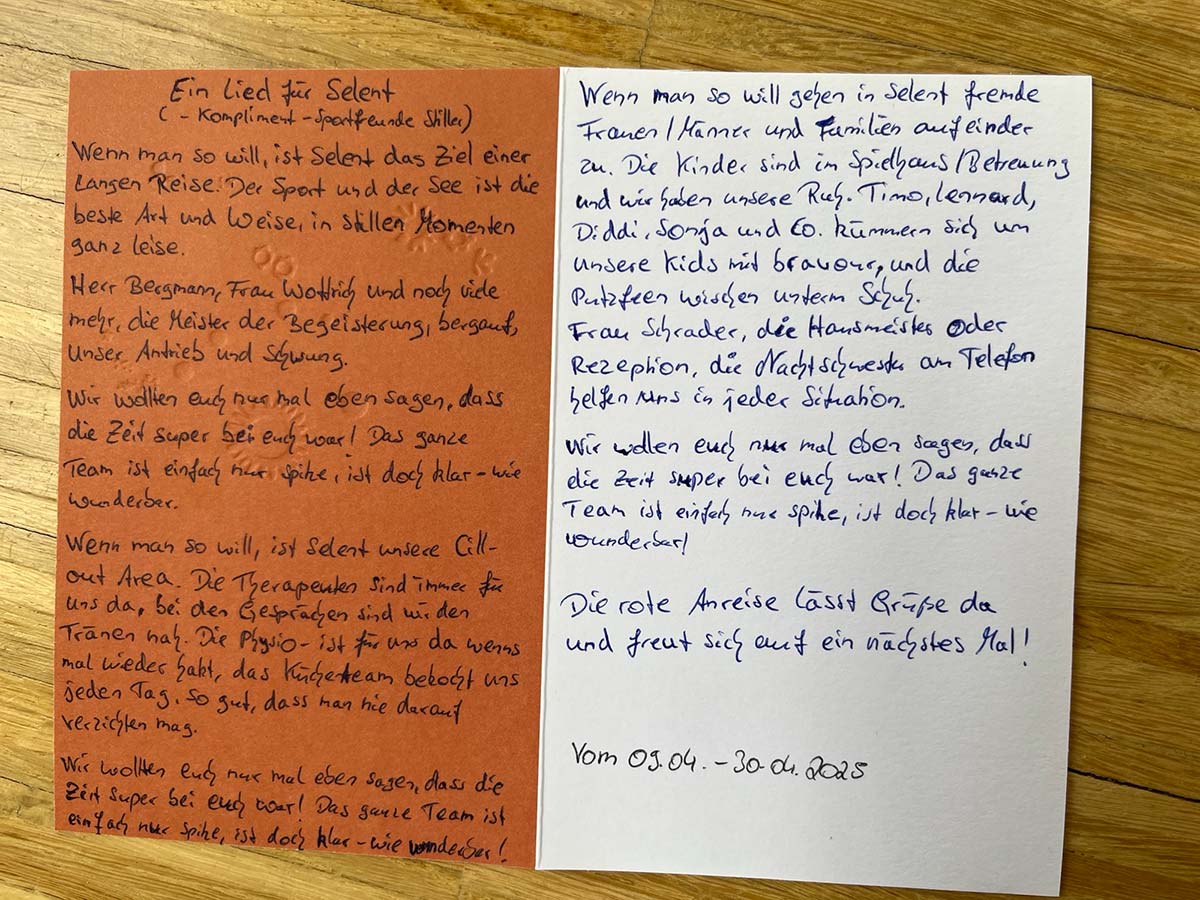 Ein Lied für Selent
( - Kompliment - Sportfreunde Stiller)
Wenn man so will, ist Selent das Ziel einer
Langen Reise. Der Sport und der See ist die
beste Art und Weise, in stillen Momenten
ganz leise.
Herr Bergmann, Frau Wottrich und noch viele
mehr, die Meister der Begeisterung, bergauf,
unser Antrieb und Schwung.
Wir wollten euch nur mal eben sagen, dass
die Zeit super bei euch war! Das ganze
Team ist einfach nur spitze, ist doch klar - wie
wunderbar.
Wenn man so will, ist Selent unsere Cill-
out Area. Die Therapeuten sind immer für
uns da, bei den Gesprächen sind wir den
Tränen nah. Die Physio - ist für uns da wenns
mal wieder hakt, das Küchenteam bekocht uns
jeden Tag, so gut, dass man nie darauf
verzichten mag.
Wir wollten euch nur mal eben sagen, dass die
Zeit super bei euch war! Das ganze Team ist
einfach nur spitze, ist doch klar - wie wunderbar!
Wenn man so will gehen in Selent fremde
Frauen/Männer und Familien aufeinder
zu. Die Kinder sind im Spielhaus/Betreuung
und wir haben unsere Ruh. Timo, Lennard,
Diddi, Sonja und Co. kümmern sich um
unsere Kids mit bravour, und die
Putzfeen wischen unterm Schuh.
Frau Schrader, die Hausmeister oder
Rezeption, die Nachtschwester am Telefon
helfen uns in jeder Situation.
Wir wollen euch nur mal eben sagen, dass
die Zeit super bei euch war! Das ganze
Team ist einfach nur spitze, ist doch klar - wie
wunderbar!
Die rote Anreise lässt Grüße da
und freut sich auf ein nächstes Mal!
Vom 09.04. - 30.04.2025